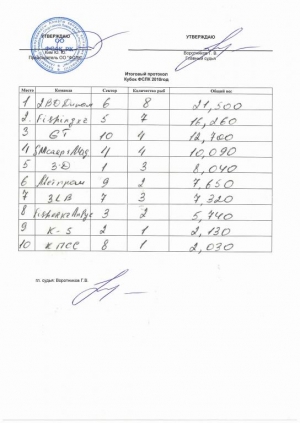 УТВЕРЖДАЮ
УТВЕРЖДАЮ
Ким Ю. Ю.
Председатель ОО "ФСЛК"
Воротников Г. В.
Главный судья
Итоговый протокол
Кубок ФСЛК 2018год
Место Команда Сектор Количество рыб Общий вес
1 6 8 21,500
2 5 7 16,260
3 GT 10 4 12,700
4 4 4 10,090
5 3-D 1 3 8,040
6 9 2 7,650
7 3LB 7 3 7,320
8 3 2 5,740
9 K-5 2 1 2,130
10 КПСС 8 1 2,030
гл. судья Воротников Г.В.